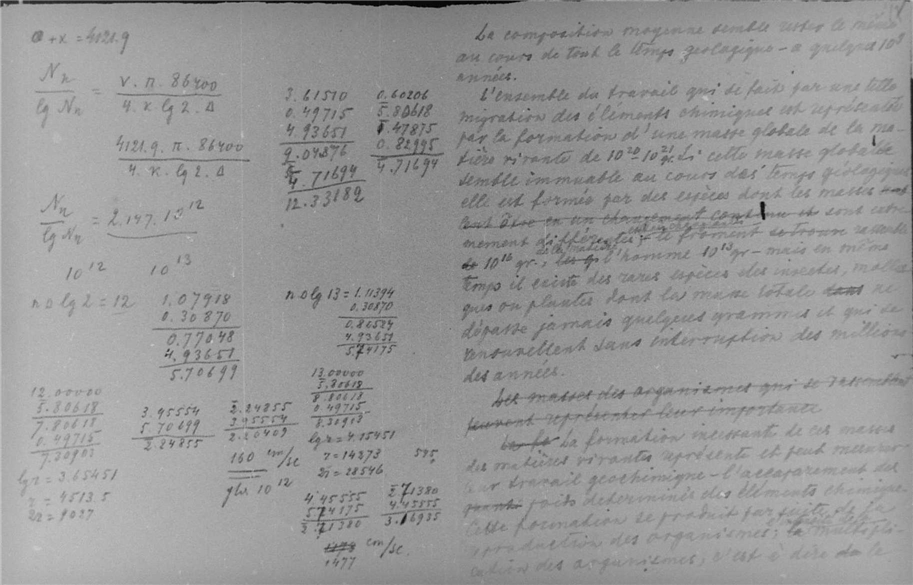 a + x = 4121.9
N n / lg N n = v. π. 86400 / 4. к. lg 2. Δ
4121.9. π. 86400 / 4. к. lg 2. Δ
N n / lg N n = 2.147. 10^12
10^12 10^13
n o lg 2 = 12
1.07918
0.30870
0.77048
4.93651
5.70699
12.00000
5.80618
7.80618
0.49715
7.30903
lg r = 3.65451
r = 4513.5
2r = 9027
3.95554
5.70699
2.24855
3.61510
0.49715
4.93651
9.04876
4.71694
12.33182
0.60206
5.80618
1.47875
0.82995
4.71694
n o lg 13 = 1.11394
0.30870
0.80524
4.93651
5.74175
13.00000
5.80618
8.80618
0.49715
8.30903
lg r = 4.15451
r = 14273
2r = 28546
2.24855
3.95554
2.20409
160 cm/sec
10^12
4.45555
5.74175
2.71380
2.71380
4.45555
3.16935
1477 cm/sec.
La composition moyenne semble rester le même
au cours de tout le temps géologique – a quelques 10^8
années.
L'ensemble du travail qui se fait par une telle
migration des éléments chimiques est représenté
par la formation d'une masse globale de la ma-
tière vivante de 10^20 – 10^21 gr. Si cette masse globale
semble immuable au cours des temps géologiques
elle est formée par des espèces dont les masses
sont extrê-
mement différentes; le froment
10^16 gr., l'homme 10^13 gr – mais en même
temps il existe des rares espèces des insectes, mollus-
ques ou plantes dont la masse totale ne
dépasse jamais quelques grammes et qui se
renouvellent sans interruption des millions
des années.
Les masses des organismes qui se rassemblent
peuvent représenter leur importance
La formation incessante de ces masses
des matières vivantes représente et peut mesurer
leur travail geochimique – l'accaparement des
faits determinés des éléments chimiques
Cette formation se produit par suite de la
production des organismes, la multipli-
cation des organismes, c'est à dire de le